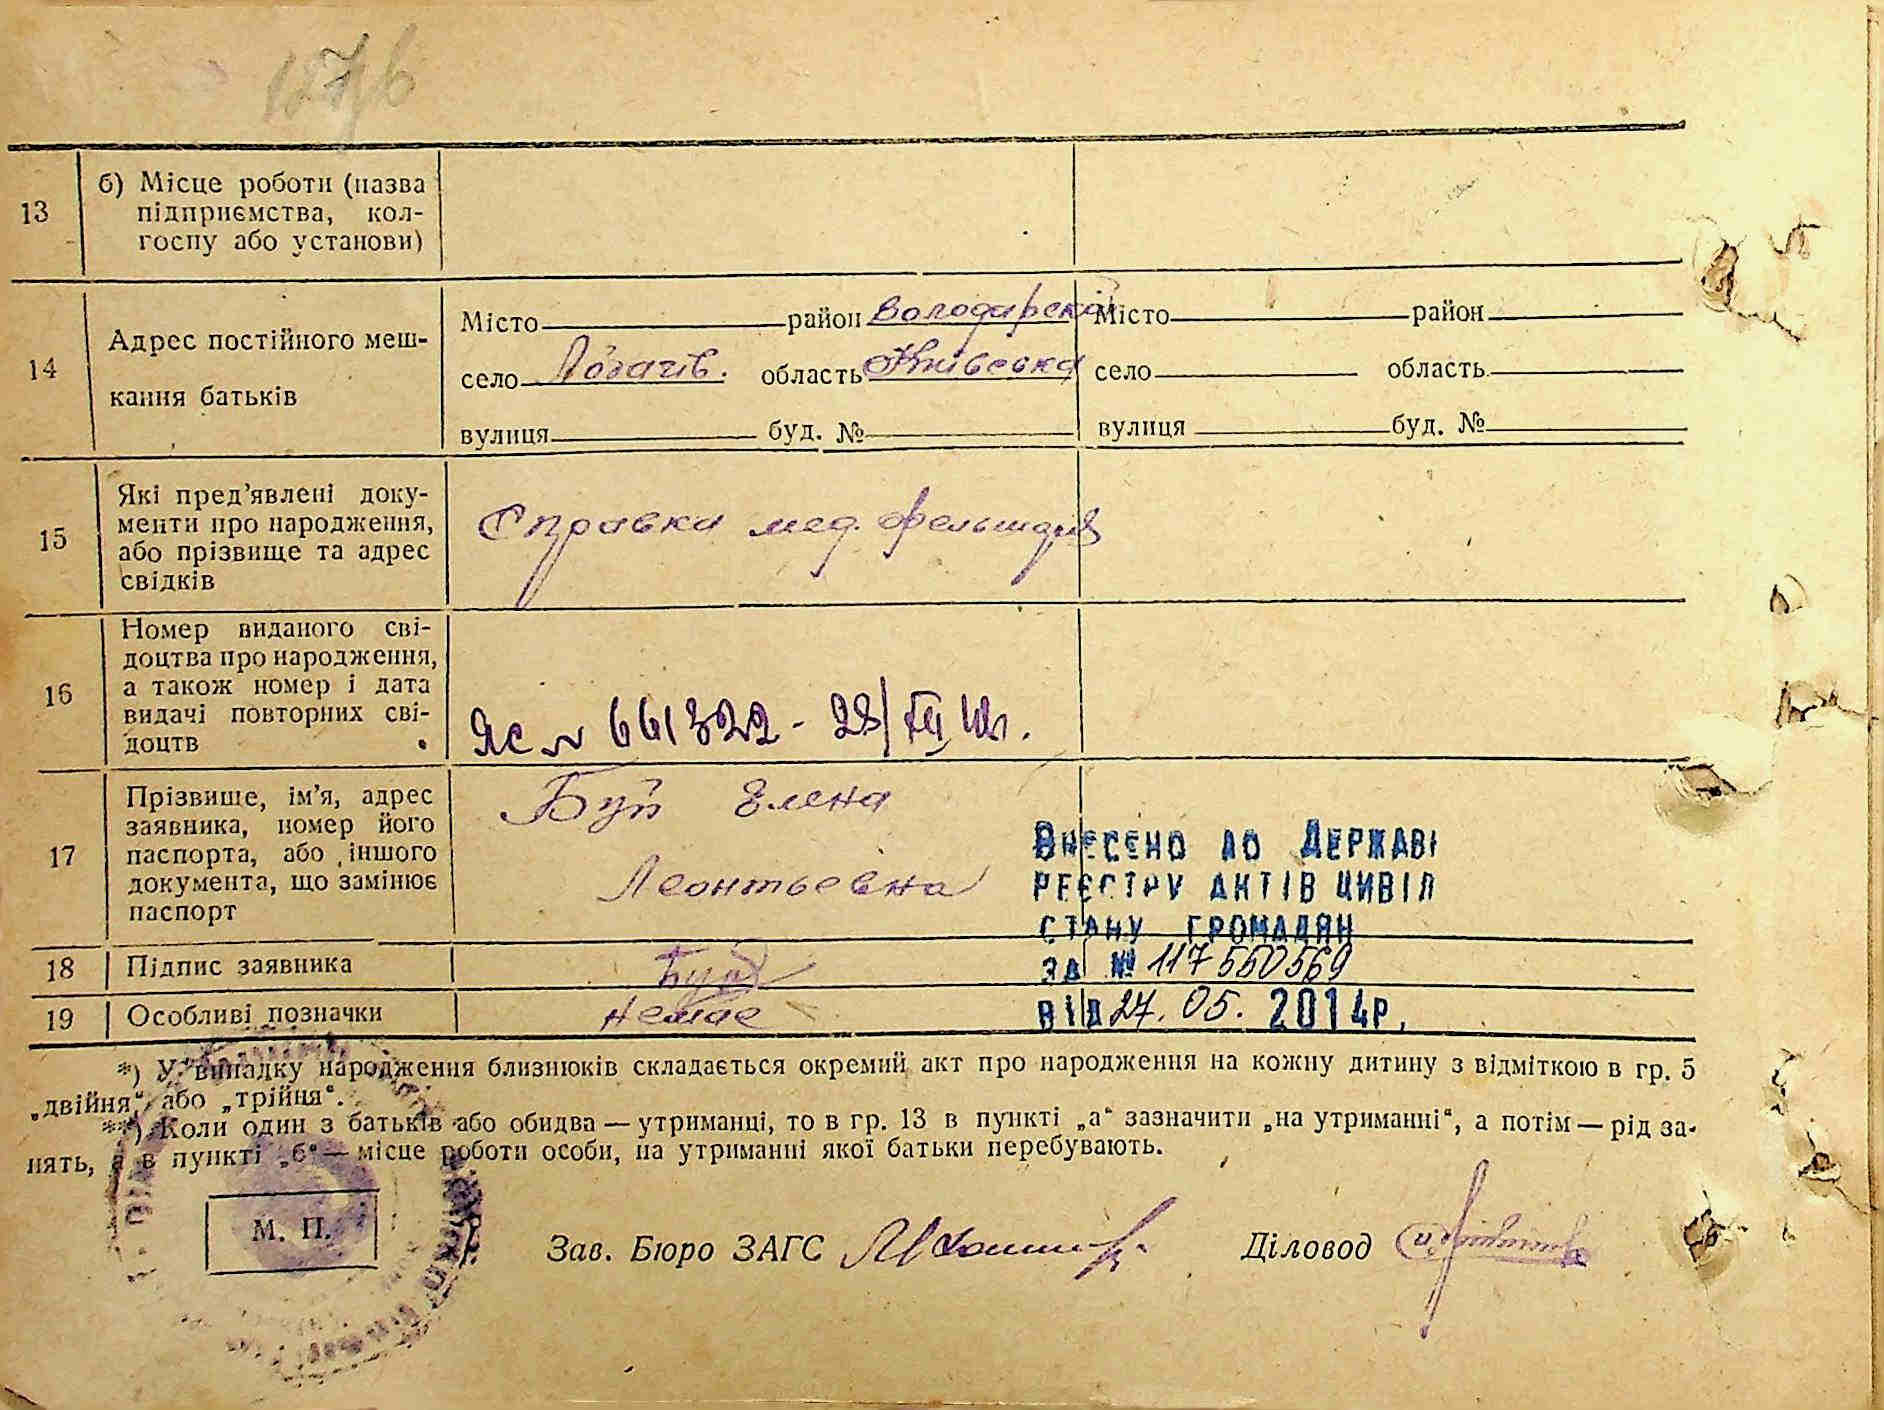 13
б) Місце роботи (назва
підприємства, кол-
госпу або установи)
14
Адрес постійного меш-
кання батьків
Місто район Володарскій
село Лозачів. область Київська
вулиця буд. №
Місто район
село область
вулиця буд. №
15
Які пред'явлені доку-
менти про народження,
або прізвище та адрес
свідків
Справка мед. фельшдля
16
Номер виданого сві-
доцтва про народження,
а також номер і дата
видачі повторних сві-
доцтв
ЯС № 661322 - 28/XII
17
Прізвище, ім'я, адрес
заявника, номер його
паспорта, або іншого
документа, що замінює
паспорт
Буй Елена
Леонтьевна
ВНЕСЕНО ДО ДЕРЖАВ
РЕЄСТРУ АКТІВ ЦИВІЛ
СТАНУ ГРОМАДЯН
ЗА № 117550569
ВІД 27. 05. 2014р.
18 Підпис заявника Буй
19 Особливі позначки немає
*) У випадку народження близнюків складається окремий акт про народження на кожну дитину з відміткою в гр. 5
„двійня“ або „трійня“.
**) Коли один з батьків або обидва — утриманці, то в гр. 13 в пункті „а“ зазначити „на утриманні“, а потім — рід за-
нять, а в пункті „б“ — місце роботи особи, на утриманні якої батьки перебувають.
М. П.
Зав. Бюро ЗАГС
Діловод